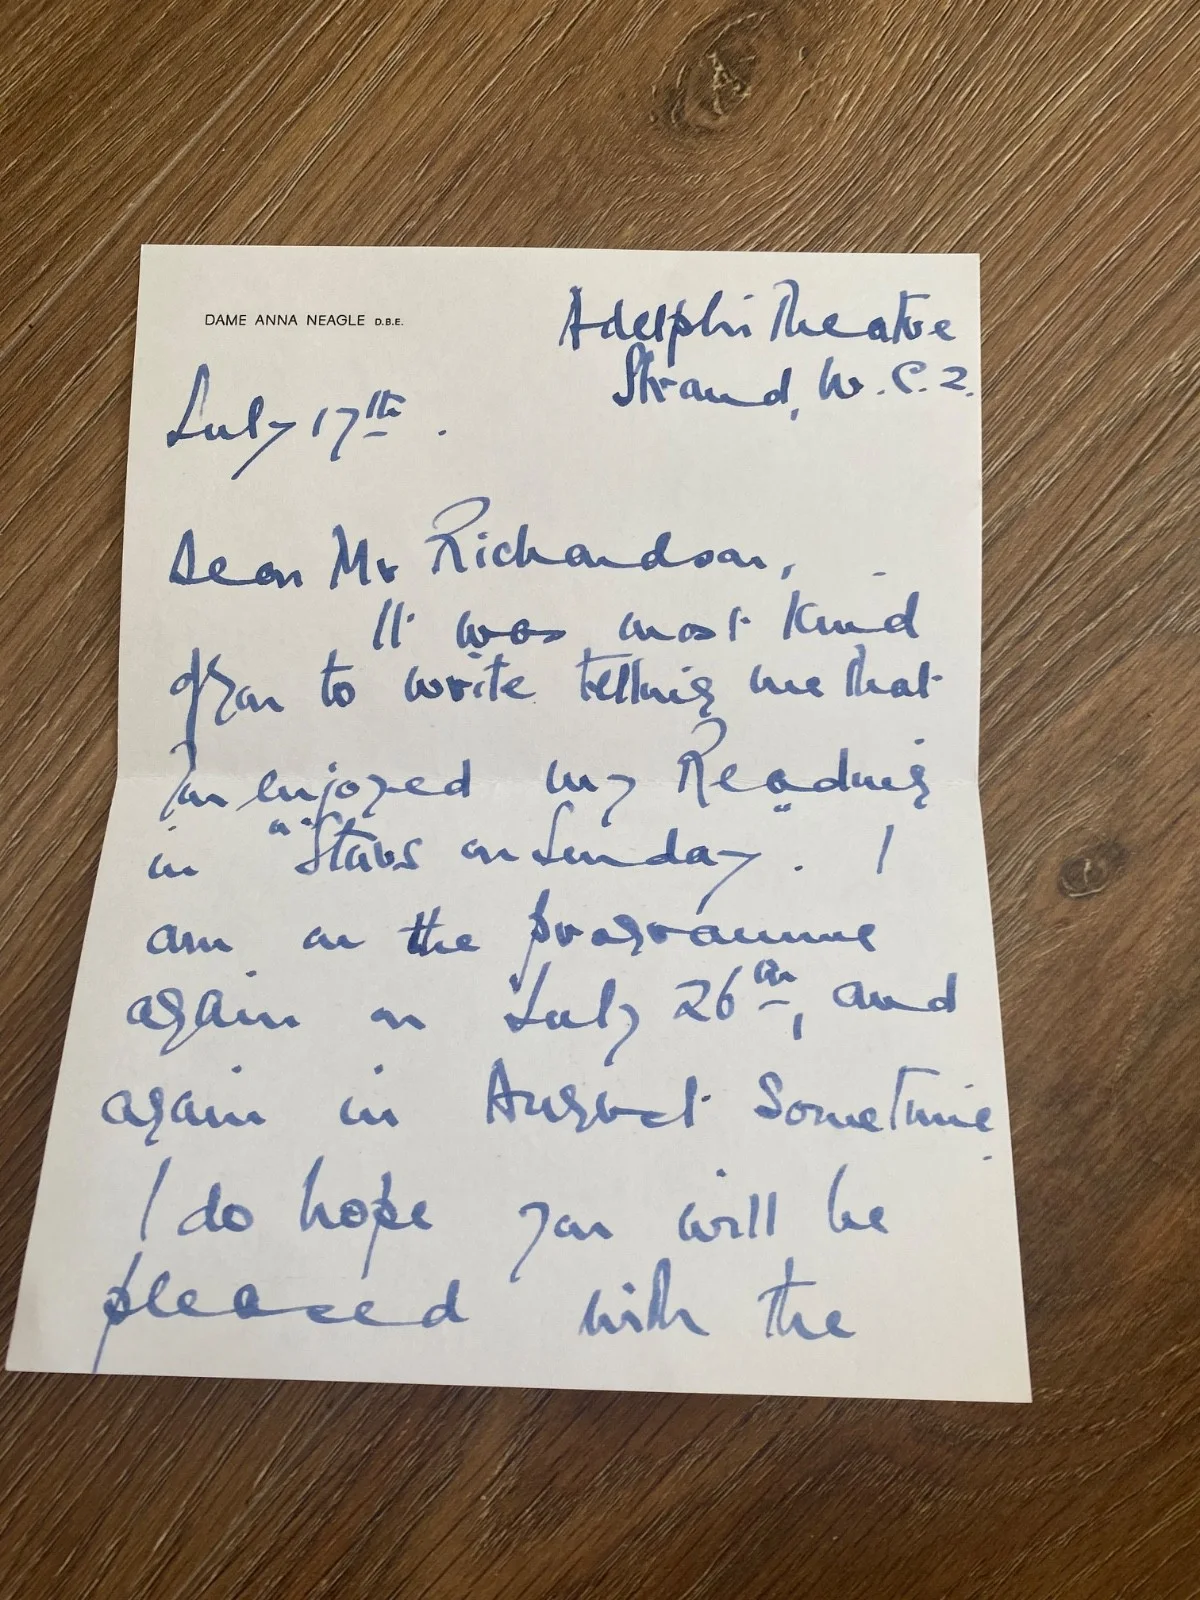 DAME ANNA NEAGLE D.B.E.
Adelphi Theatre
Strand, W.C.2.
July 17th.
Dear Mr Richardson,
It was most kind
of you to write telling me that
you enjoyed my Reading
in "Stars on Sunday". I
am on the programme
again on July 26th, and
again in August sometime.
I do hope you will be
pleased with the